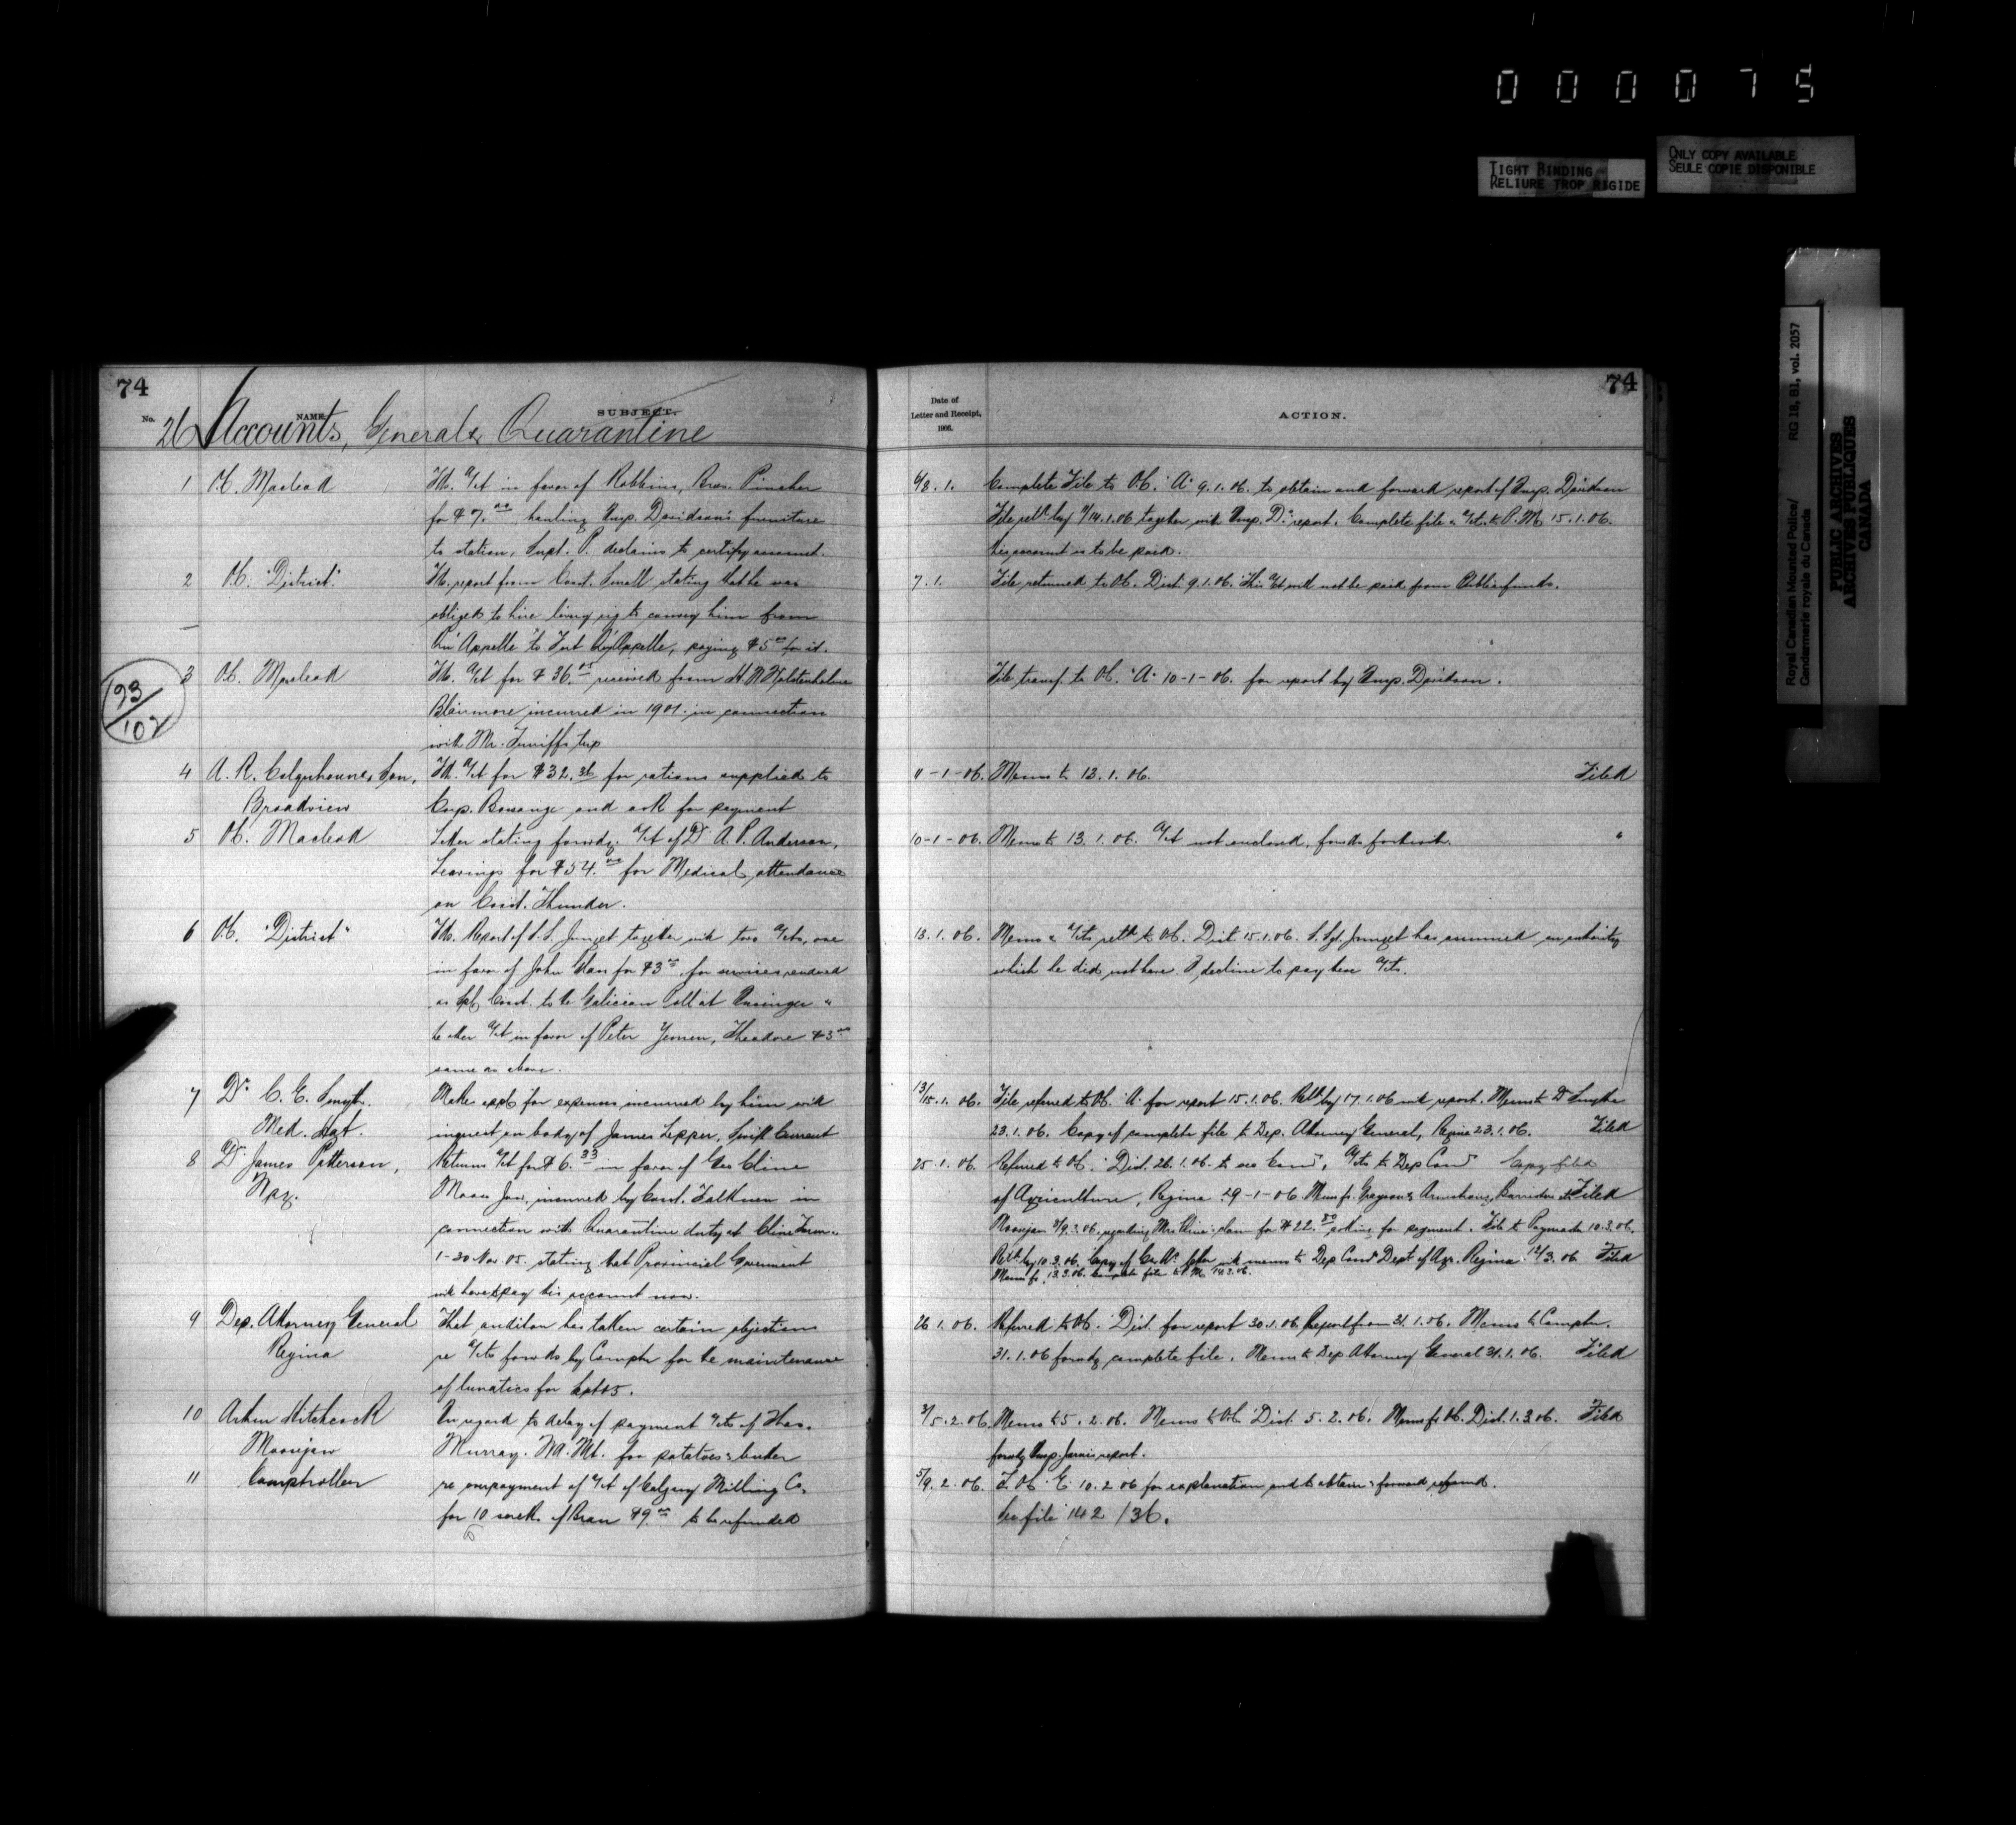 0 0 0 0 7 5
TIGHT BINDING
RELIURE TROP RIGIDE
ONLY COPY AVAILABLE
SEULE COPIE DISPONIBLE
Royal Canadian Mounted Police/
Gendarmerie royale du Canada
RG 18, B1, vol. 2057
PUBLIC ARCHIVES
ARCHIVES PUBLIQUES
CANADA
74
No. NAME. SUBJECT.
26 Accounts, General & Quarantine
1 O.C. Macleod
a/ct in favor of Robbins, Bros. Pincher
for $7.00 hauling Insp. Davidson's furniture
to station, Supt. P. declines to certify account.
2 O.C. "District"
report from Const. Small stating that he was
obliged to hire livery rig to convey him from
Qu'Appelle to Fort Qu'Appelle, paying $5.00 for it.
93/102
3 O.C. Macleod
a/ct for $36. received from
Blairmore incurred in 1901 in connection
with Mr. Tunniffs trip
4 A. R. Colquhoun & Son,
Broadview
a/ct for $32.36 for rations supplied to
Corp. Bossange and ask for payment
5 O.C. Macleod
Letter stating forwdg. a/ct of Dr A. P. Anderson,
for $54.00 for Medical attendance
on Const. Thunder.
6 O.C. "District"
Report of S.S. Junget together with two a/cts, one
in favor of John for $3.00 for services rendered
as Spl Const. to the Galician Poll at Insinger &
the other a/ct in favor of Peter Theodore $3.00
same as above.
7 Dr. C. E. Smyth.
Med. Hat.
Makes appl for expenses incurred by him with
inquest on body of James Lepper, Swift Current
8 Dr James Patterson,
Wpg.
Returns a/ct for $6.33 in favor of Geo Cline
Moose Jaw, incurred by Const. Falkner in
connection with Quarantine duty at Cline Farm
1-30 Nov 05. stating that Provincial Government
will have to pay this account now.
9 Dep. Attorney General
Regina
That auditor has taken certain objections
re a/cts forwdd by Comptr for the maintenance
of lunatics for Sept 05.
10 Arthur Hitchcock
Moosejaw
In regard to delay of payment a/cts of Thos.
Murray. Wd. Mt. for potatoes & butter
11 Comptroller
re overpayment of a/ct of Calgary Milling Co.
for 10 sacks of Bran $9.00 to be refunded
74
Date of
Letter and Receipt,
1906.
ACTION.
6/8. 1. Complete File to O.C. "A" 9.1.06. to obtain and forward report of Insp. Davidson
File retd by 14.1.06 together with Insp. D's report. Complete file & a/cts to P.M. 15.1.06.
this account is to be paid.
7. 1. File returned to O.C. Dist. 9.1.06. This a/ct will not be paid from Public funds.
File transf. to O.C. "A" 10-1-06. for report by Insp. Davidson.
11-1-06. Memo to 13.1.06. Filed
10-1-06. Memo to 13.1.06. a/ct not enclosed, forwd forthwith. "
13.1.06. Memo & a/cts retd to O.C. Dist. 15.1.06. S. Sgt. Junget has assumed an authority
which he did not have. I decline to pay these a/cts.
13/15.1.06. File referred to O.C. "A" for report 15.1.06. Retd by 17.1.06 with report. Memo to Dr Smyth
23.1.06. Copy of complete file to Dep. Attorney General, Regina 23.1.06. Filed
25.1.06. Referred to O.C. "Dist. 26.1.06. a/cts to Dep Comr Copy filed
of Agriculture, Regina 29-1-06. Memo fr. Grayson & Armstrong, Barristers Filed
Moosejaw 8/9.3.06. regarding Mrs Cline's claim for $22.50 asking for payment. File to Paymaster 10.3.06.
Retd by 10.3.06. Copy of letter with memo to Dep Comr Dept of Agr. Regina 12/3.06 Filed
Memo fr. 13.3.06. Complete file to P.M. 14.3.06.
26.1.06. Referred to O.C. Dist. for report 30.1.06. Report from 31.1.06. Memo to Comptr.
31.1.06 forwdg complete file. Memo to Dep Attorney General 31.1.06. Filed
3/5.2.06. Memo to 5.2.06. Memo to O.C. Dist. 5.2.06. Memo fr. O.C. Dist. 1.3.06. Filed
forwdg Insp. Jarvis report.
5/9.2.06. T. O.C. "E" 10.2.06 for explanation and to obtain & forward refund.
See file 142/36.